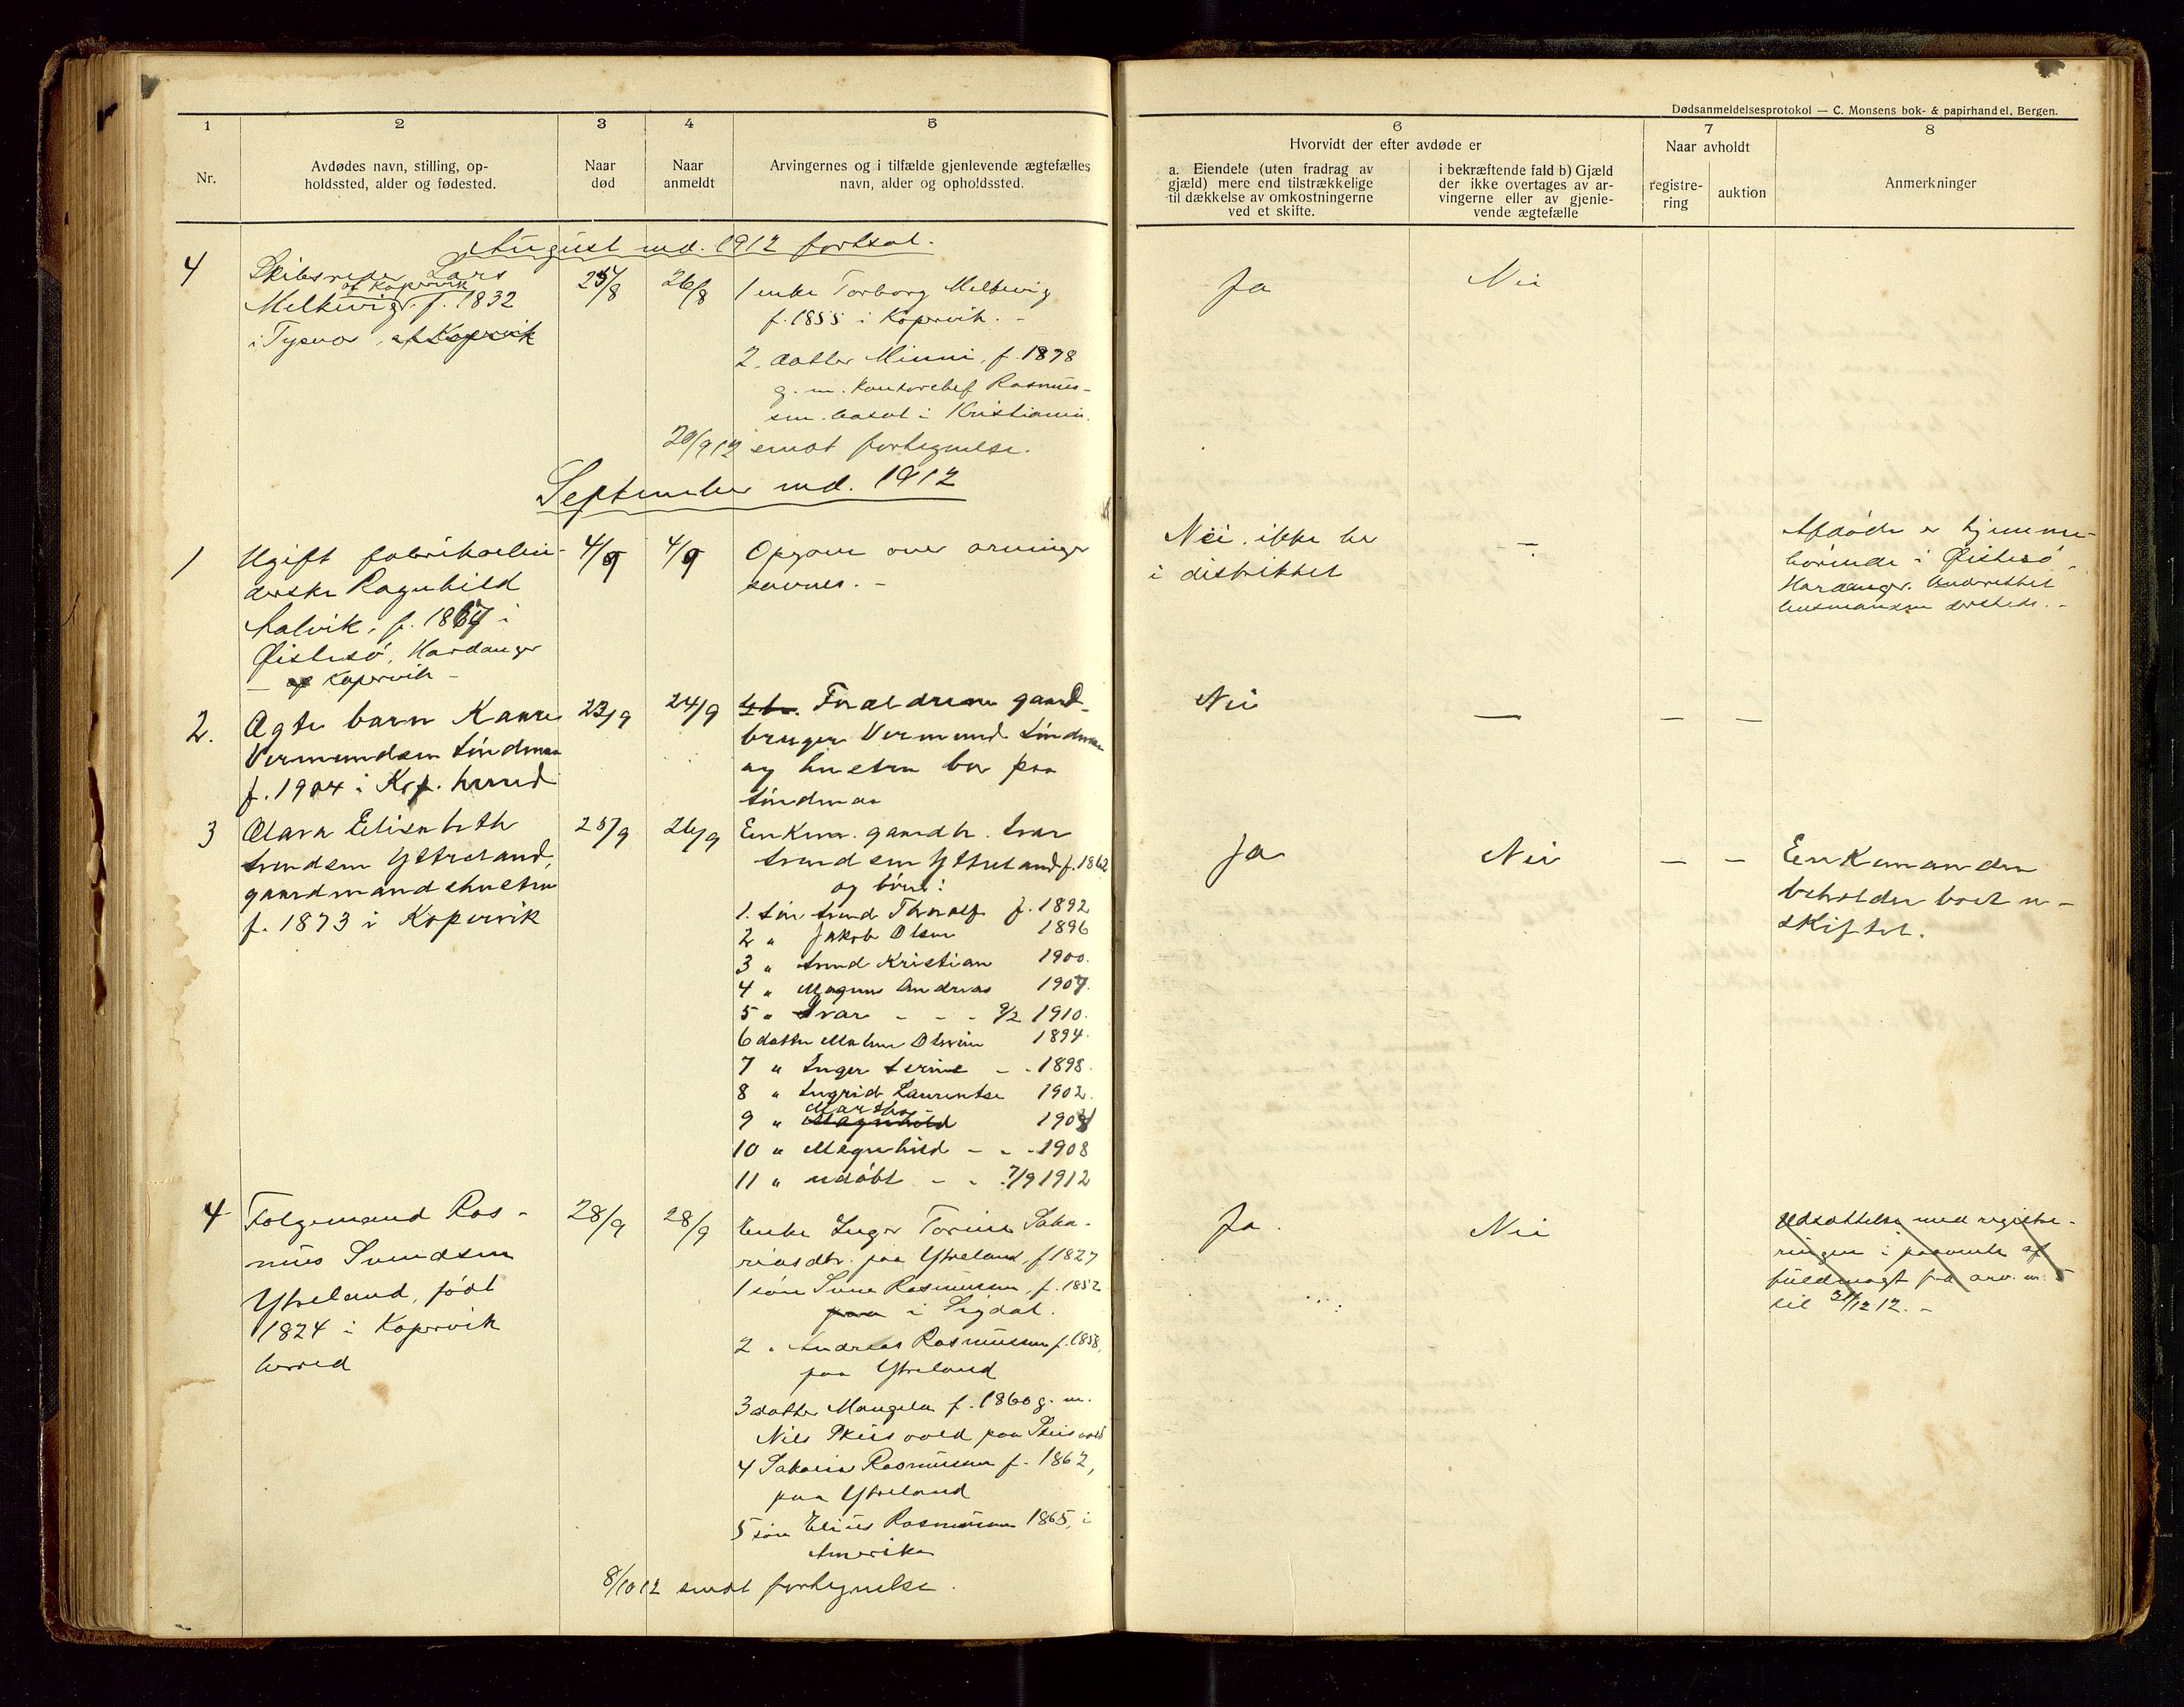 Dødsanmeldelsesprotokol — C. Monsens bok- & papirhandel, Bergen.
1
2
3
4
5
6
7
8
Nr.
Avdødes navn, stilling, op-
holdssted, alder og fødested.
Naar
død
Naar
anmeldt
Arvingernes og i tilfælde gjenlevende ægtefælles
navn, alder og opholdssted.
Hvorvidt der efter avdøde er
a. Eiendele (uten fradrag av
gjæld) mere end tilstrækkelige
til dækkelse av omkostningerne
ved et skifte.
i bekræftende fald b) Gjæld
der ikke overtages av ar-
vingerne eller av gjenle-
vende ægtefælle
Naar avholdt
registre-
ring
auktion
Anmerkninger
August md. 1912 fortsat.
4
Skibsreder Lars
af Kopervik
Melkevig. f. 1832
i Tysvær, af Kopervik
25/8
26/8
1 enke Torborg Melkevig
f. 1855 i Kopervik. -
2. datter Minni, f. 1878
g. m. kontorchef Rasmus-
sen. bosat i Kristiania.
20/9 12 sendt fortegnelse.
Ja
Nei
September md. 1912
1
Ugift fabrikarbei-
derske Ragnhild
Aalvik, f. 1867 i
Øistesø, Hardanger
- af Kopervik -
4/9
4/9
Opgave over arvinger
savnes. -
Nei, ikke her
i distriktet
-
Afdøde er hjemme-
hørende i Øistesø,
Hardanger. Underrettet
lensmanden dersteds. -
2.
Ægte barn Kaare
Vermundsen Sündmaa
f. 1904 i Kop. herred
23/9
24/9
Forældrene gaard-
bruger Vermund
og hustru bor paa
Nei
—
— —
3
Olava Elisabeth
Svendsen Ytreland,
gaardmandshustru
f. 1873 i Kopervik
25/9
26/9
Enkem. gaardb. Ivar
Svendsen Ytreland f. 1862
og børn:
1. Søn Svend Thoralf f. 1892
2 " Jakob Olsen 1896
3 " Svend Kristian 1900.
4 " Magnus Andreas 1907.
5 " Ivar - - - 9/2 1910.
6 datter Malene Olevine 1894.
7 " Inger Serine - - 1898.
8 " Ingrid Laurentse 1902.
Martha -
9 " Magnhild 1904
10 " Magnhild - - - 1908
11 " udøbt - - 7/9 1912
Ja
Nei
— —
Enkemanden
beholder boet u-
skiftet.
4
Folgemand Ras-
mus Svendsen
Ytreland, født
1824 i Kopervik
herred
28/9
28/9
Enke Inger Torine Saka-
riasdtr. paa Ytreland, f 1827
1 søn Svend Rasmussen, f. 1852
paa i Sigdal.
2 " Andreas Rasmussen f. 1858,
paa Ytreland
3 datter Mangela f. 1860 g. m.
Nils Skeisvold paa Skeisvold
4 Sakarias Rasmussen f. 1862,
paa Ytreland
5 søn Elius Rasmussen 1865, i
Amerika
8/10 12 sendt fortegnelse.
Ja.
Nei
Udsættelse med registre-
ringen i paavente af
fuldmagt fra arv. nr. 5
til 31/12 12. -